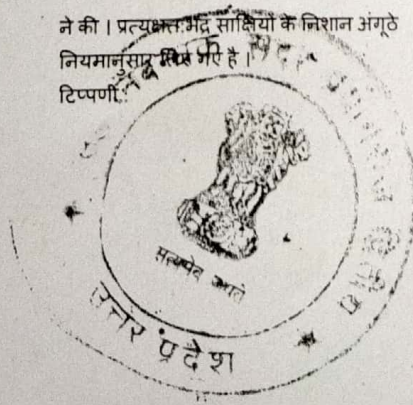 ने की । प्रत्यक्षतःभद्र साक्षियों के निशान अंगूठे
नियमानुसार लिए गए है ।
टिप्पणी :
सत्यमेव जयते
उत्तर प्रदेश